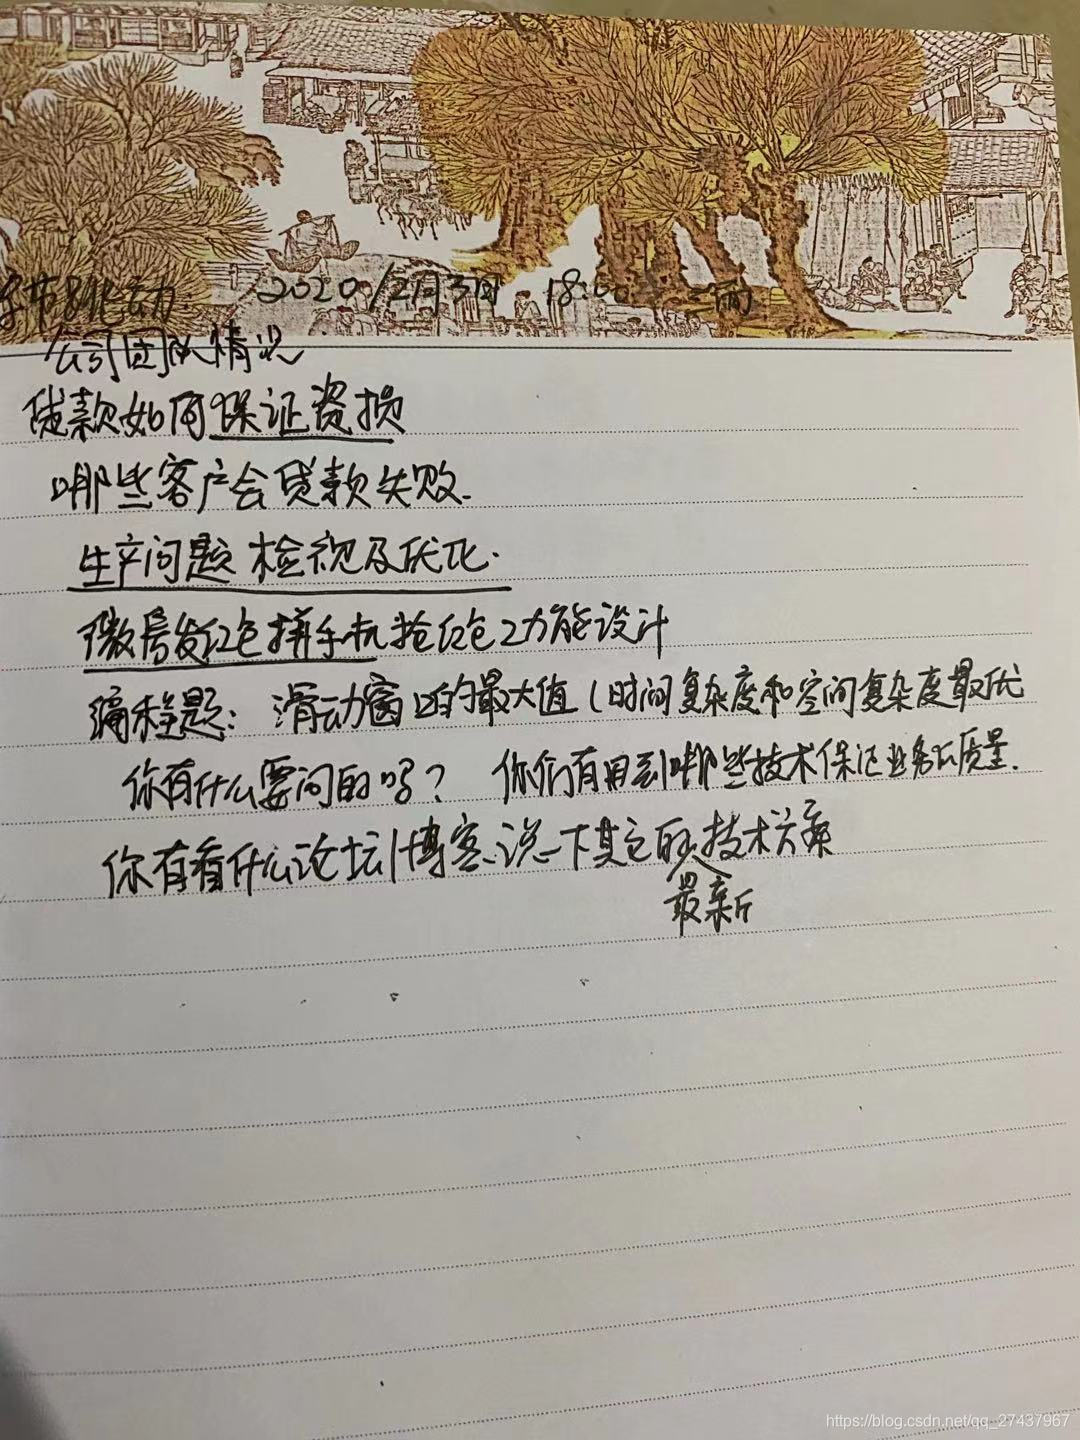 字节跳动 2020/12月3日 18:0 二面
公司团队情况
贷款如何保证资损
哪些客户会贷款失败.
生产问题 检视及优化.
微信发红包拼手机抢红包功能设计
编程题: 滑动窗口的最大值 (时间复杂度和空间复杂度最优
你有什么要问的吗? 你们有用到哪些技术保证业务的质量.
你有看什么论坛/博客、说一下其它的技术方案
最新
https://blog.csdn.net/qq_27437967